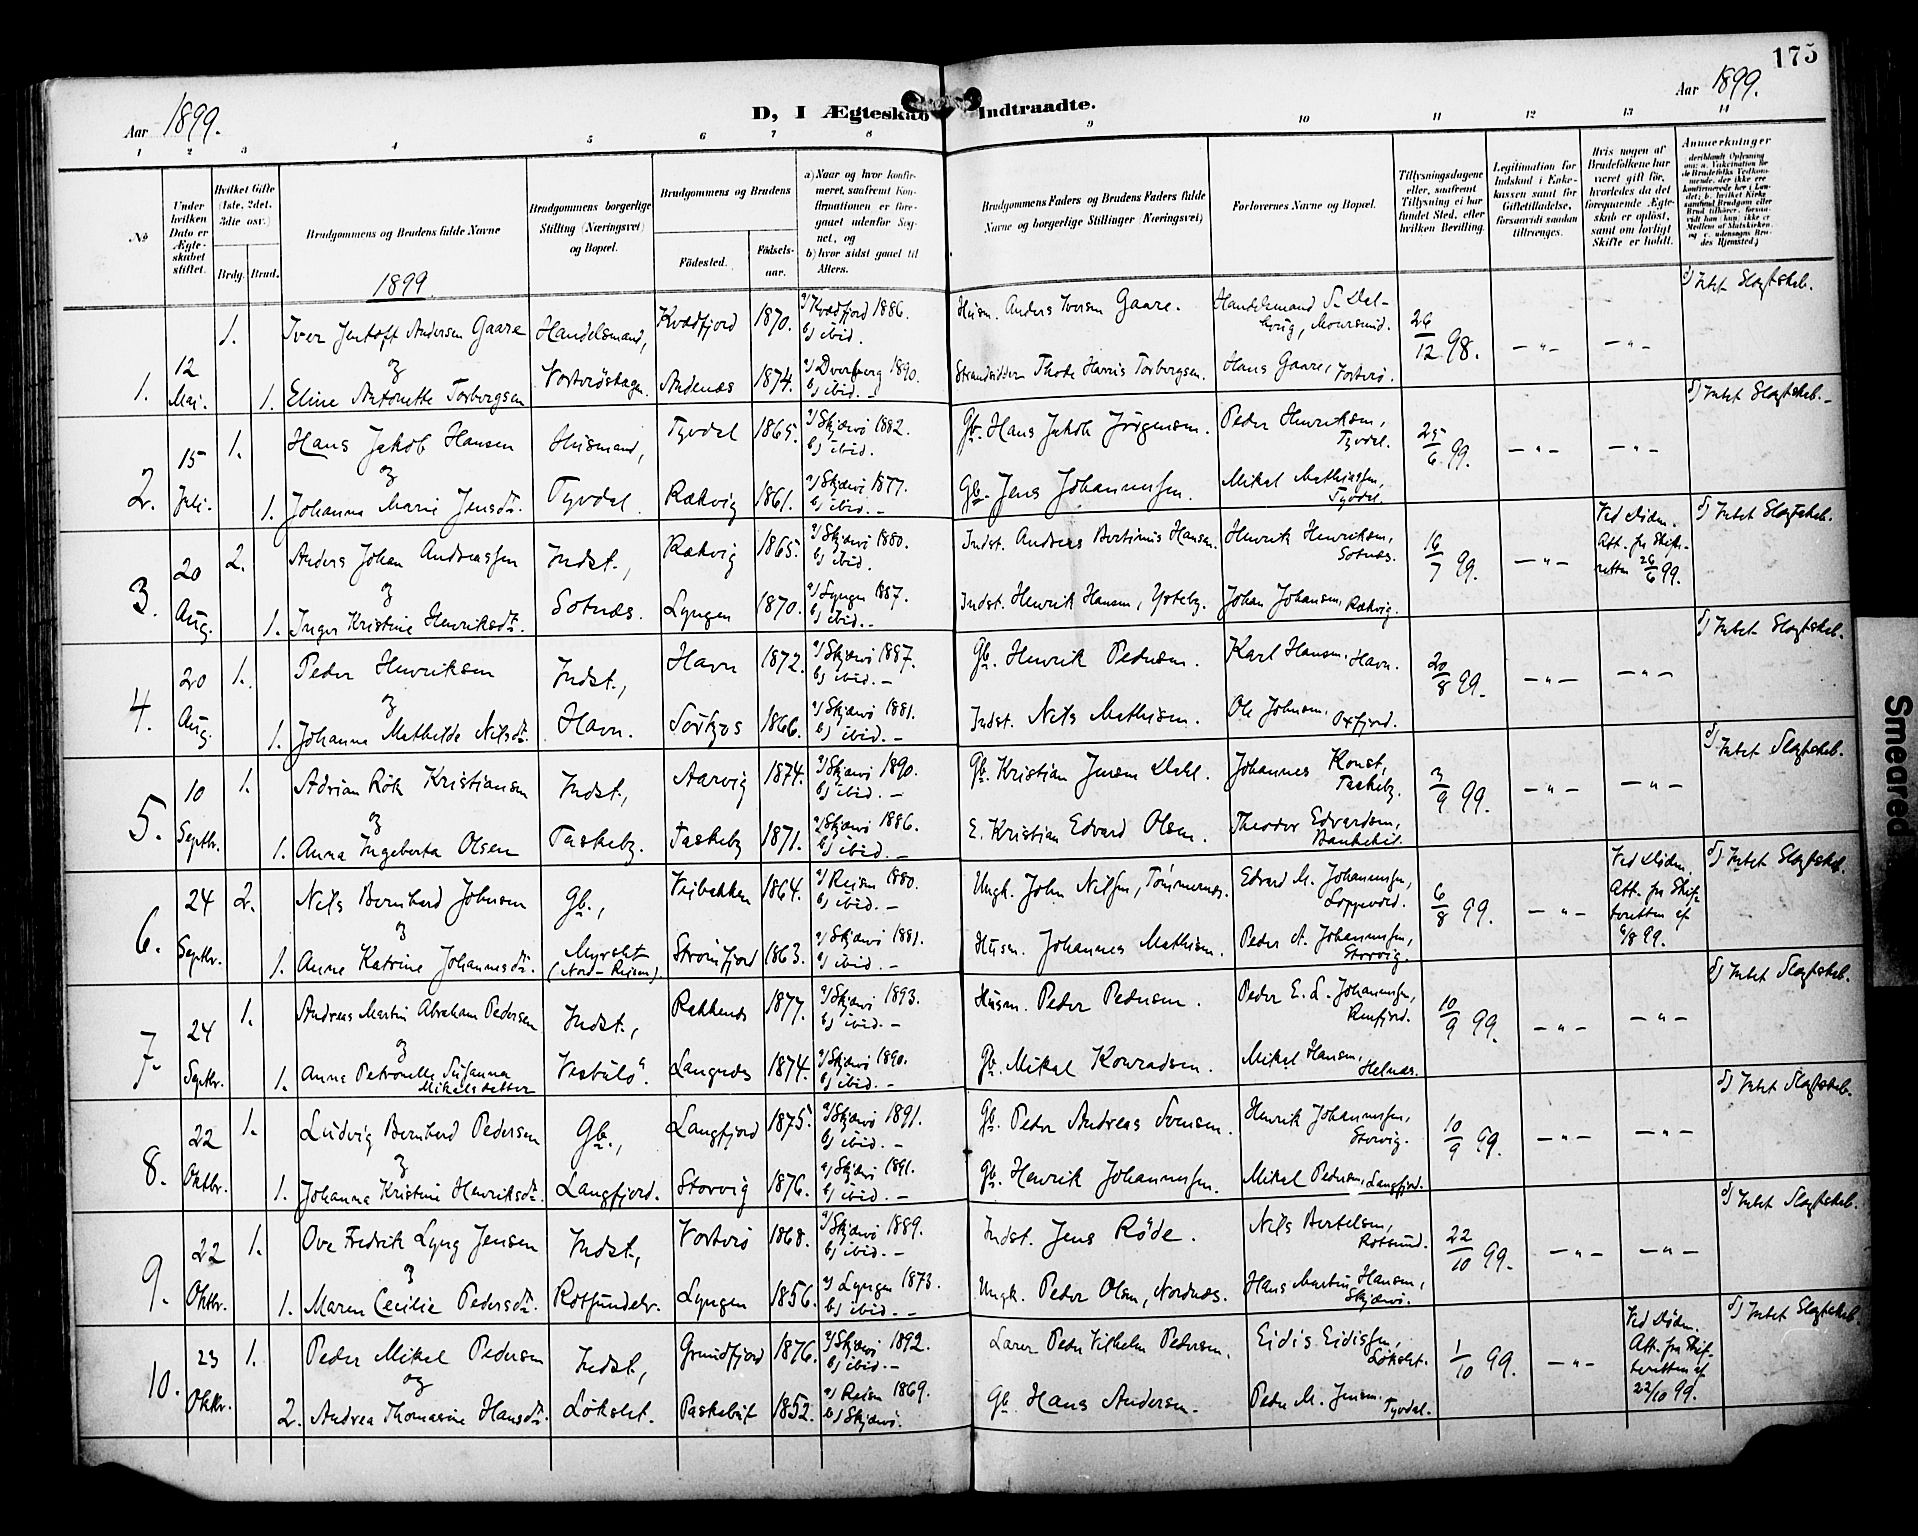 175
Aar 1899.
D, I Ægteskab Indtraadte.
Aar 1899.
1 2 3 4 5 6 7 8 9 10 11 12 13 14
No
Under hvilken Dato er Ægteskabet stiftet.
Hvilket Gifte (1ste, 2det, 3die osv.)
Brdg. Brud.
Brudgommens og Brudens fulde Navne
Brudgommens borgerlige Stilling (Næringsvei) og Bopæl.
Brudgommens og Brudens
Fødested.
Fødselsaar.
a) Naar og hvor konfirmeret, saafremt Konfirmationen er foregaaet udenfor Sognet, og
b) hvor sidst gaaet til Alters.
Brudgommens Faders og Brudens Faders fulde Navne og borgerlige Stillinger (Næringsvei)
Forlovernes Navne og Bopæl.
Tillysningsdagene eller, saafremt Tillysning ei har fundet Sted, efter hvilken Bevilling.
Legitimation for Indskud i Enkekassen samt for Giftetilladelse, forsaavidt saadan tiltrænges.
Hvis nogen af Brudefolkene har været gift før, hvorledes da det foregaaende Ægteskab er opløst, samt om lovligt Skifte er holdt.
Anmerkninger
1899
1. 12 Mai. 1. Iver Jentoft Andersen Gaare Handelsmand, Kvædfjord 1870. a) Kvædfjord 1886. b) ibid. Husm. Anders Iversen Gaare. Handelsmand 26/12 98. — " — — " — Intet Slægtskab.
og
1. Eline Antonette Torbergsen Vorterøskagen. Andenæs 1874. a) Dverberg 1890. b) ibid. — Torbergsen. Hans Gaare, Vorterø.
2. 15 Juli. 1. Hans Jakob Hansen Husmand, Tyvdal 1865. a) Skjærvø 1882. b) ibid. Gb. Hans Jakob Jørgensen. Peder Henriksen, Tyvdal. 25/6 99. — " — — " — Intet Slægtskab. —
og
1. Johanna Marie Jensdtr. Tyvdal. Rækvig 1861. a) Skjærvø 1877. b) ibid. — Gb. Jens Johannessen. Mikal Mathiassen, Tyvdal.
3. 20 Aug. 2. Anders Johan Andreassen Indst., Rækvig 1865. a) Skjærvø 1880. b) ibid. Indst. Andreas Bertinius Hansen. Henrik Henriksen, Sotnæs. 16/7 99. — " — Ved Døden. Att. fra Skifteretten 26/6 99. Intet Slægtskab.
og
1. Inger Kristine Henriksdtr. Sotnæs. Lyngen 1870. a) Lyngen 1887. b) ibid. — Indst. Henrik Hansen, Ysteby. Johan Johansen, Rækvig.
4. 20 Aug. 1. Peder Henriksen Indst., Havn 1872. a) Skjærvø 1887. b) ibid. — Gb. Henrik Pedersen. Karl Hansen, Havn. 20/8 99. — " — — " — Intet Slægtskab.
og
1. Johanna Mathilde Nilsdtr. Havn. 1866. a) Skjærvø 1881. b) ibid. — Indst. Nils Mathisen. Ole Johnsen, Oxfjord.
5. 10 Septbr. 1. Adrian Røk Kristiansen Indst., Aarvig 1874. a) Skjærvø 1890. b) ibid. — Gb. Kristian Jensen Dahl. Johannes Konst, Taskeby. 3/9 99. — " — — " — Intet Slægtskab.
og
1. Anna Ingeberta Olsen Taskeby. Taskeby 1871. a) Skjærvø 1886. b) ibid. — E. Kristian Edvard Olsen. Theodor Edvardsen,
6. 24 Septbr. 2. Nils Bernhard Johnsen Gb., Veibakken 1864. a) Reisen 1880. b) ibid. — Ungk. John Nilsen, Tømmernæs. Edvard M. Johannessen, 6/8 99. — " — Ved Døden. Att. fra Skifteretten af 6/8 99. Intet Slægtskab.
og
1. Anne Katrine Johannesdtr. (Nord-Reisen). Strømfjord 1863. a) Skjærvø 1881. b) ibid. — Husm. Johannes Mathisen. Peder A. Johannessen, Storvig.
7. 24 Septbr. 1. Andreas Martin Abraham Pedersen Indst., Rakkenes 1877. a) Skjærvø 1893. b) ibid. — Husm. Peder Pedersen. Peder E. L. Johannessen, 10/9 99. — " — — " — Intet Slægtskab.
og
1. Anna Petronella Susanna Mikalsdatter Langnæs 1874. a) Skjærvø 1890. b) ibid. — Gb. Mikal Konradsen. Mikal Hansen, Helnæs.
8. 22 Oktbr. 1. Ludvig Bernhard Pedersen Gb., Langfjord 1875. a) Skjærvø 1891. b) ibid. — Gb. Peder Andreas Svensen. Henrik Johannessen, Storvig. 10/9 99. — " — — " — Intet Slægtskab.
og
1. Johanna Kristine Henriksdtr. Langfjord. Storvig 1876. a) Skjærvø 1891. b) ibid. — Gb. Henrik Johannessen. Mikal Pedersen, Langfjord.
9. 22 Oktbr. 1. Ove Fredrik Lyng Jensen Indst., Vorterø 1868. a) Skjærvø 1889. b) ibid. — Indst. Jens Røde. Nils Bertelsen, Rotsund. 22/10 99. — " — — " — Intet Slægtskab.
og
1. Maren Cecilie Pedersdtr. Rotsundelv. Lyngen 1856. a) Lyngen 1873. b) ibid. — Ungk. Peder Olsen, Nordnæs. Hans Martin Hansen, Skjærvø.
10. 23 Oktbr. 1. Peder Mikal Pedersen Indst., Grundfjord 1876. a) Skjærvø 1892. b) ibid. — Lærer Peder Vilhelm Pedersen. Eidis Eidissen, Løkslet. 1/10 99. — " — Ved Døden. Att. fra Skifteretten af 22/10 99. Intet Slægtskab.
og
2. Andrea Thomasine Hansdtr. Løkslet. 1852. a) Reisen 1869. b) Skjærvø. Gb. Hans Andersen. Peder M. Jensen, Tyvdal.
Smeared